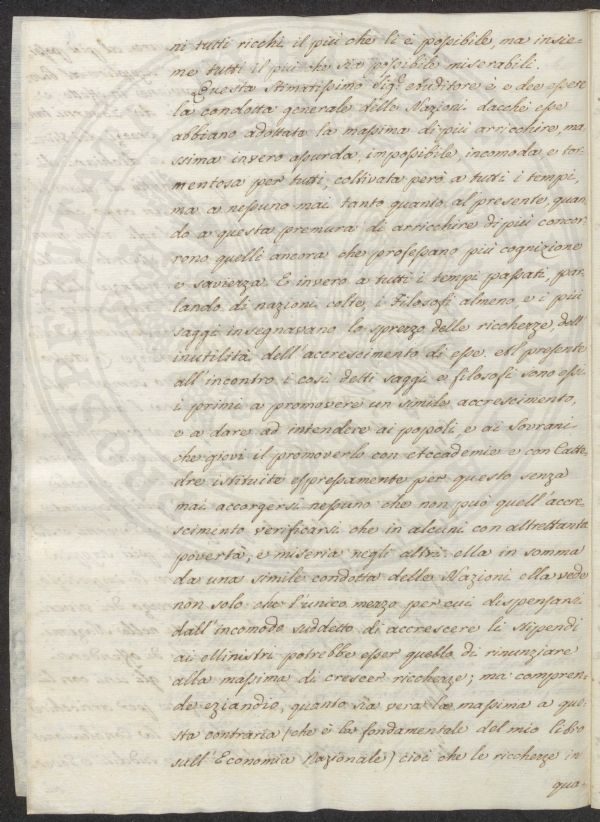 ni tutti ricchi il più che li è possibile, ma insie-
me tutti il più che sia possibile miserabili.
Questa Stimatissimo Sig.r eduditore è e dee essere
la condotta generale delle Nazioni dacchè esse
abbiano adottata la massima di più arricchire, ma
ssima invero assurda, impossibile, incomoda e tor-
mentosa per tutti, coltivata però a tutti i tempi,
ma a nessuno mai tanto quanto al presente, quan-
do a questa premura di arricchire di più concor-
rono quelli ancora che professano più cognizione
e saviezza. E invero a tutti i tempi passati par-
lando di nazioni colte, i Filosofi almeno e i più
saggi insegnavano lo sprezzo delle ricchezze, dell'
inutilità dell'accrescimento di esse. Al presente
all'incontro i così detti saggi e filosofi sono essi
i primi a promovere un simile accrescimento,
e a dare ad intendere ai popoli, e ai Sovrani
che giovi il promoverlo con Accademie e con Catte-
dre istituite espressamente per questo senza
mai accorgersi nessuno che non può quell'accre-
scimento verificarsi che in alcuni con altrettanta
povertà, e miseria negli altri. ella in somma
da una simile condotta delle Nazioni ella vede
non solo che l'unico mezzo per cui dispensarsi
dall'incomodo suddetto di accrescere li stipendi
ai Ministri potrebbe esser quello di rinunziare
alla massima di crescer ricchezze; ma compren-
de eziandio, quanto sia vera la massima a que-
sta contraria (che è la fondamentale del mio libro
sull'Economia Nazionale) cioè che le ricchezze in
qua-
PROSPERITATE